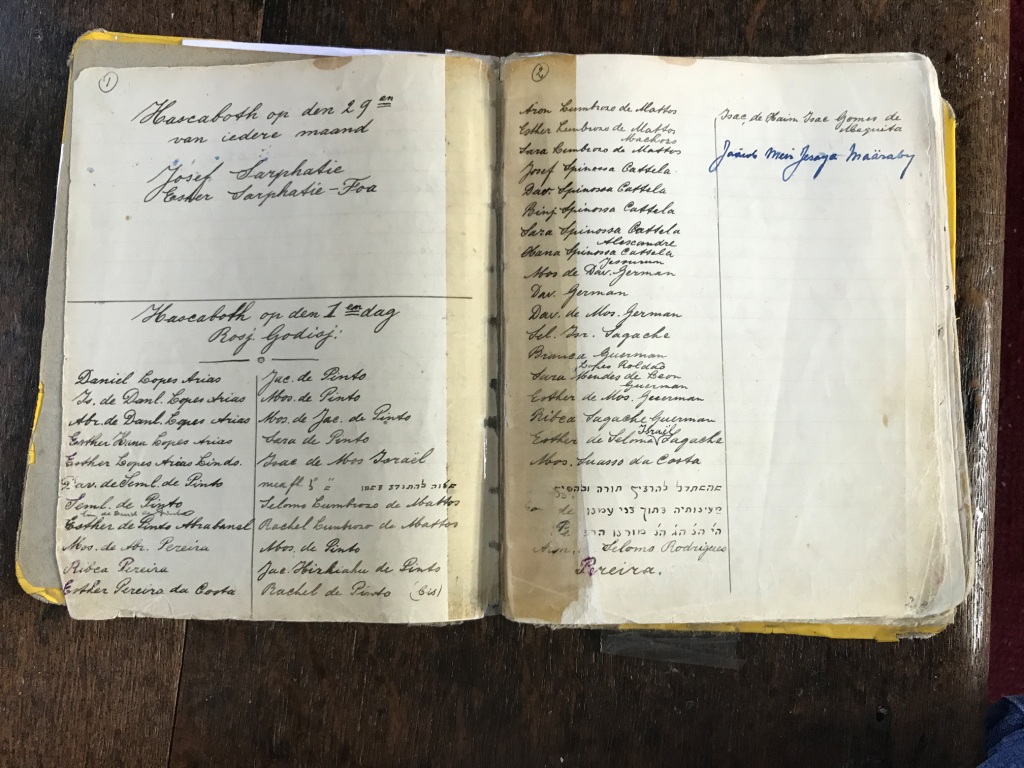 1
Hascaboth op den 29en
van iedere maand
Josef Sarphatie
Esther Sarphatie-Foa
Hascaboth op den 1en dag
Rosj Godisj:
Daniel Lopes Arias
Is. de Danl. Lopes Arias
Abr. de Danl. Lopes Arias
Esther Hana Lopes Arias
Esther Lopes Arias Lindo.
Dav. de Seml. de Pinto
Seml. de Pinto
Esther de Pinto Abrabanel
Mos. de Abr. Pereira
Ribca Pereira
Esther Pereira da Costa
Jac. de Pinto
Mos. de Pinto
Mos. de Jac. de Pinto
Sara de Pinto
Isac de Mos Israël
Selomo Lumbrozo de Mattos
Rachel Lumbrozo de Mattos
Mos. de Pinto
Jac. Hizkiahu de Pinto
Rachel de Pinto (bis)
2
Aron Lumbrozo de Mattos
Esther Lumbrozo de Mattos
Machoro
Sara Lumbrozo de Mattos
Josef Spinossa Cattela
Dav. Spinossa Cattela
Binj Spinossa Cattela
Sara Spinossa Cattela
Alescandre
Hana Spinossa Cattela
Jessurun
Mos de Dav. German
Dav. German
Dav. de Mos. German
Sel. Isr. Sagache
Branca Guerman
Lopes Roldao
Sara Mendes de Leon
Guerman
Esther de Mos. Geuerman
Ribca Sagache Guerman
Israël
Esther de Selomo Sagache
Mos. Suasso da Costa
להרביץ תורה
בתוך בני עמינו
מורנו הרב
Aron Selomo Rodrigues
Pereira.
Isac. de Haim Isac Gomes de
Mesquita
Jaäcob Meir Jesaya Maäraby